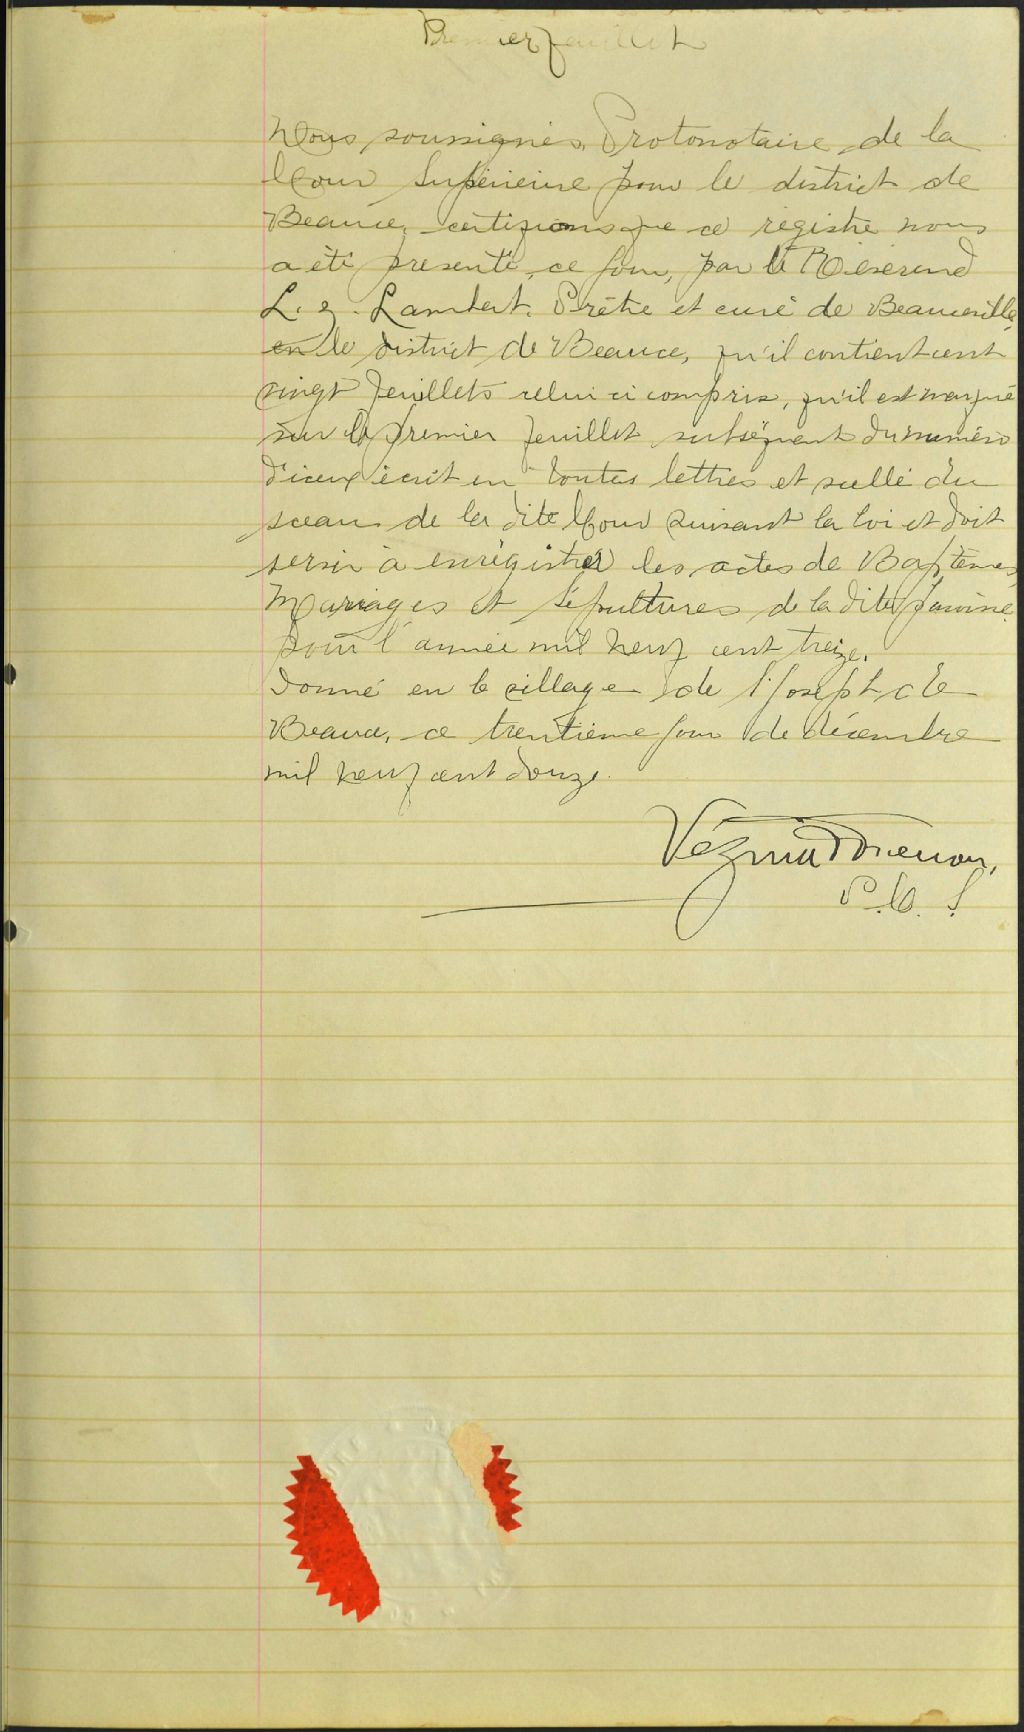 Premier feuillet
Nous soussignés, Protonotaire de la
Cour Supérieure pour le district de
Beauce, certifions que ce régistre nous
a été présenté, ce jour, par le Révérend
L. Z. Lambert, Prêtre et curé de Beauceville
en le district de Beauce, qu'il contient cent
vingt feuillets celui ci compris, qu'il est marqué
sur le premier feuillet subséquent du numéro
d'iceux écrit en toutes lettres et scellé du
sceau de la dite Cour suivant la loi et doit
servir à enrégistrer les actes de Baptêmes,
Mariages et Sépultures de la dite paroisse
pour l'année mil neuf cent treize.
Donné en le village de St Joseph de
Beauce, ce trentième jour de décembre
mil neuf cent douze.
Vézina
P. C. S